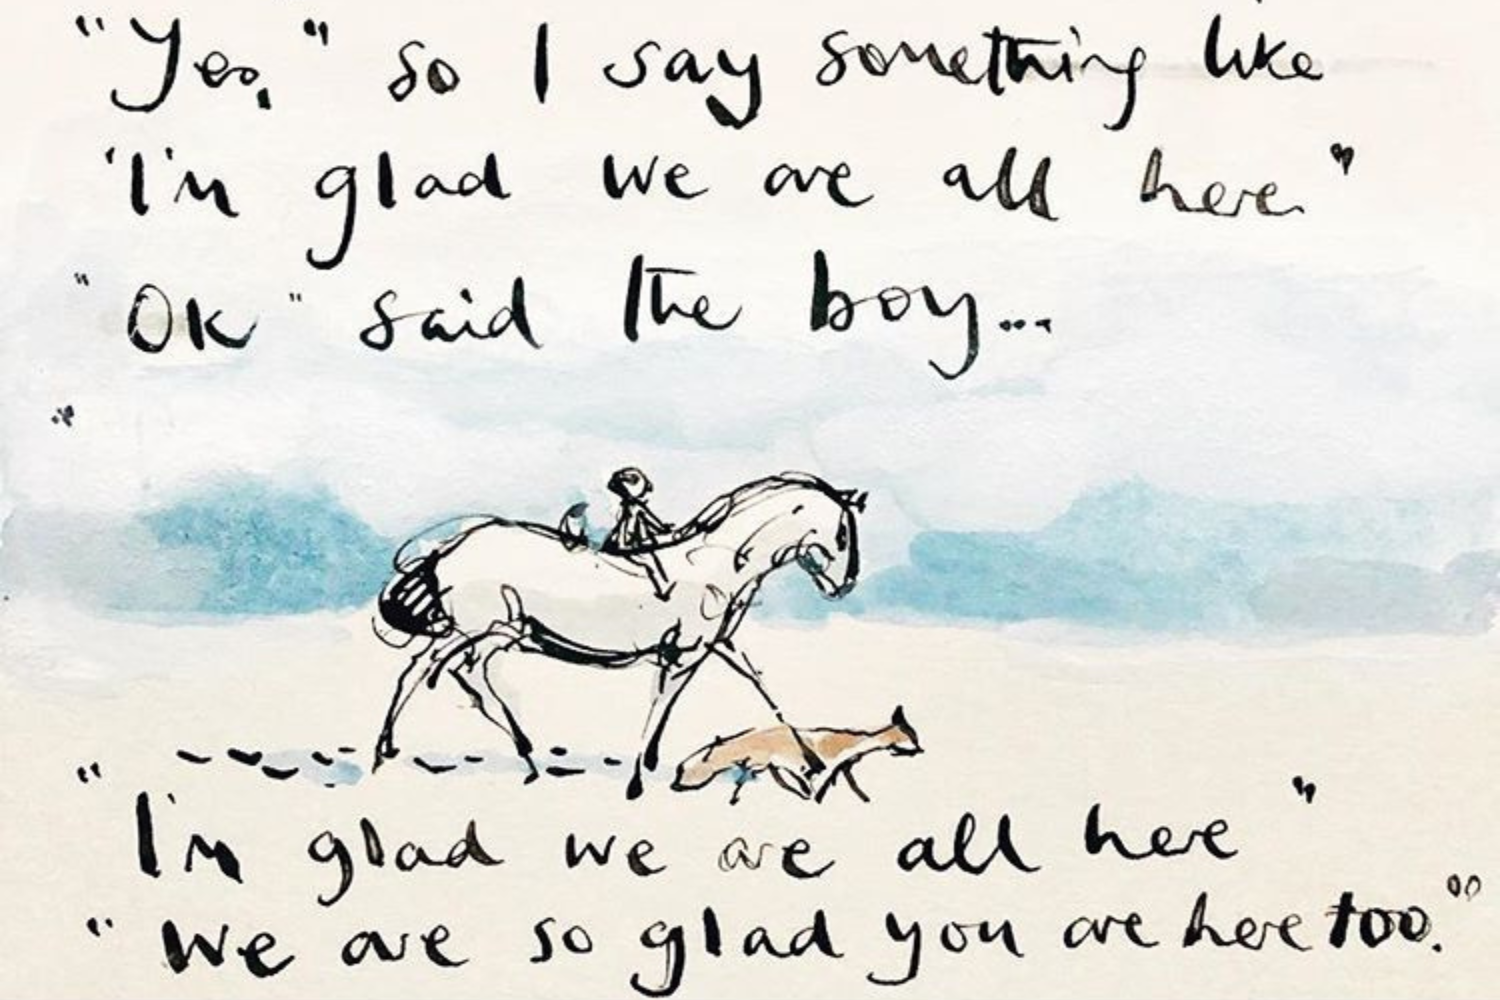 "Yes," so I say something like
'I'm glad we are all here."
"Ok" said the boy...
"I'm glad we are all here"
"We are so glad you are here too."